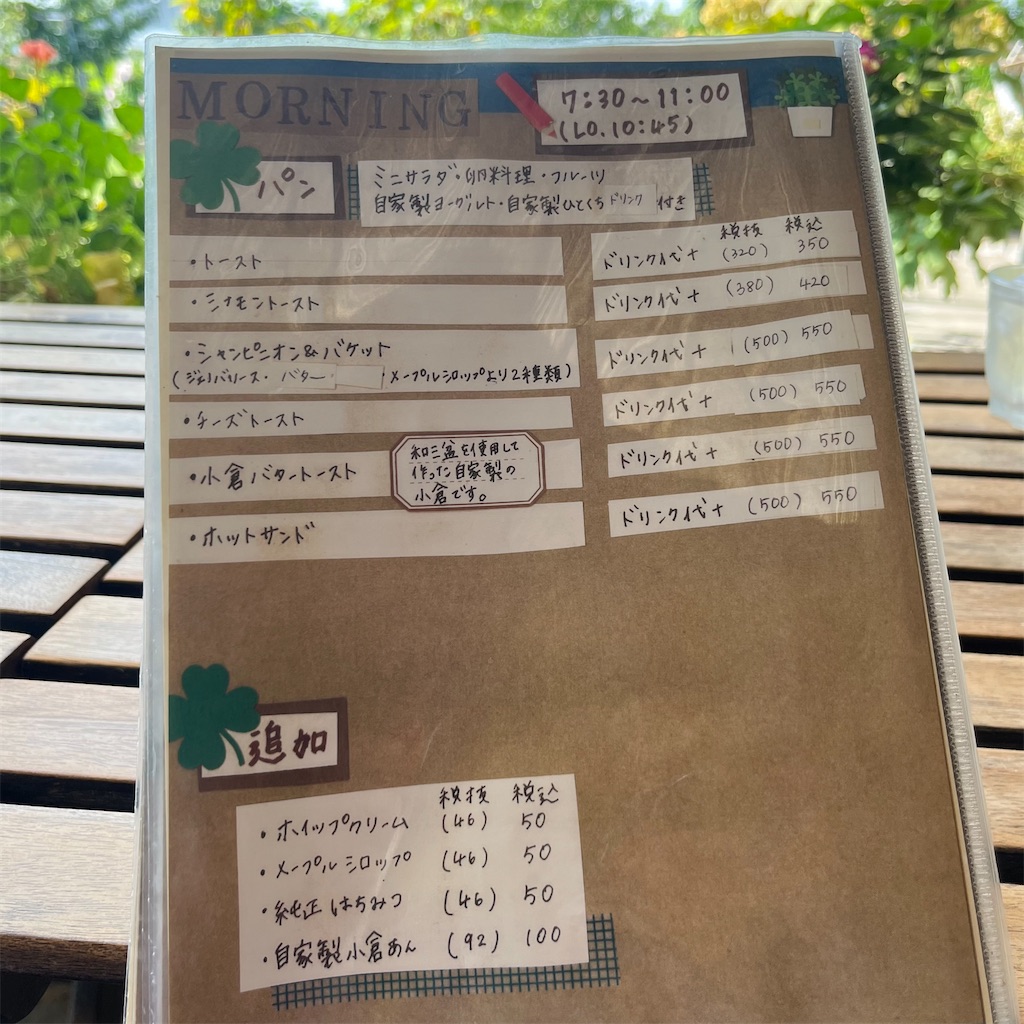 MORNING
7:30～11:00
(LO.10:45)
パン
ミニサラダ・卵料理・フルーツ
自家製ヨーグルト・自家製ひとくちドリンク付き
税抜 税込
・トースト ドリンク代+ (320) 350
・シナモントースト ドリンク代+ (380) 420
・シャンピニオン&バケット ドリンク代+ (500) 550
(ジェリバリース・バター メープルシロップより2種類)
・チーズトースト ドリンク代+ (500) 550
・小倉バタートースト ドリンク代+ (500) 550
和三盆を使用して
作った自家製の
小倉です。
・ホットサンド ドリンク代+ (500) 550
追加
税抜 税込
・ホイップクリーム (46) 50
・メープルシロップ (46) 50
・純正はちみつ (46) 50
・自家製小倉あん (92) 100